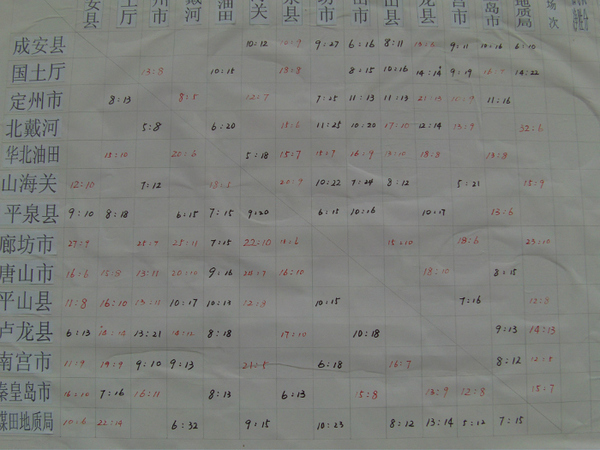 安县 土厅 州市 戴河 油田 关 泉县 坊市 山市 山县 龙县 宫市 岛市 地质局 场次
成安县 10:12 9:27 6:16 8:11 9:11 6:10
国土厅 13:8 10:15 18:8 8:15 10:16 14:14 9:19 14:22
定州市 8:13 8:5 12:7 7:25 11:13 11:13 21:13 11:16
北戴河 5:8 6:20 11:25 10:20 17:10 12:14 13:9 32:6
华北油田 15:10 20:6 5:18 15:7 15:9 16:9 18:8 13:8
山海关 12:10 7:12 18:5 20:9 10:22 7:24 8:12 5:21 15:9
平泉县 9:10 8:18 6:15 7:15 9:20 6:15 10:16 10:17 13:6
廊坊市 27:9 25:7 25:11 7:15 22:10 15:10 18:6 23:10
唐山市 16:6 15:8 13:11 20:10 9:16 16:10 18:10 8:15
平山县 16:10 13:11 10:17 10:13 12:8 10:15 7:16 12:8
卢龙县 6:13 14:12 13:21 14:12 8:18 17:10 10:18 9:13 14:13
南宫市 11:9 19:9 9:10 9:13 21:5 6:18 16:7 8:12 12:5
秦皇岛市 16:10 7:16 16:11 8:13 6:13 15:8 13:9 12:8 15:7
煤田地质局 10:6 22:14 6:32 9:15 10:23 8:12 13:14 5:12 7:15